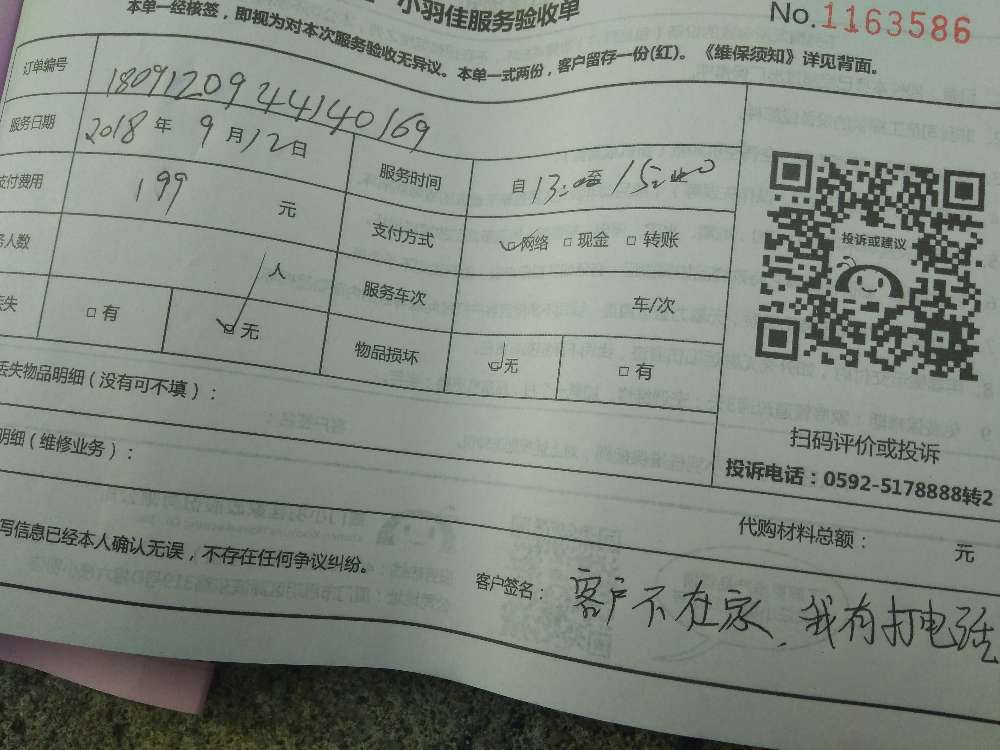 小羽佳服务验收单
No.1163586
本单一经核签，即视为对本次服务验收无异议。本单一式两份，客户留存一份(红)。《维保须知》详见背面。
订单编号 1809120944140169
服务日期 2018年9月12日 服务时间 自13:00至15:00
支付费用 199 元 支付方式 网络 现金 转账
务人数 人 服务车次 车/次
丢失 有 无 物品损坏 无 有
丢失物品明细（没有可不填）：
明细（维修业务）：
投诉或建议
扫码评价或投诉
投诉电话：0592-5178888转2
代购材料总额： 元
写信息已经本人确认无误，不存在任何争议纠纷。
客户签名： 客户不在家，我有打电话